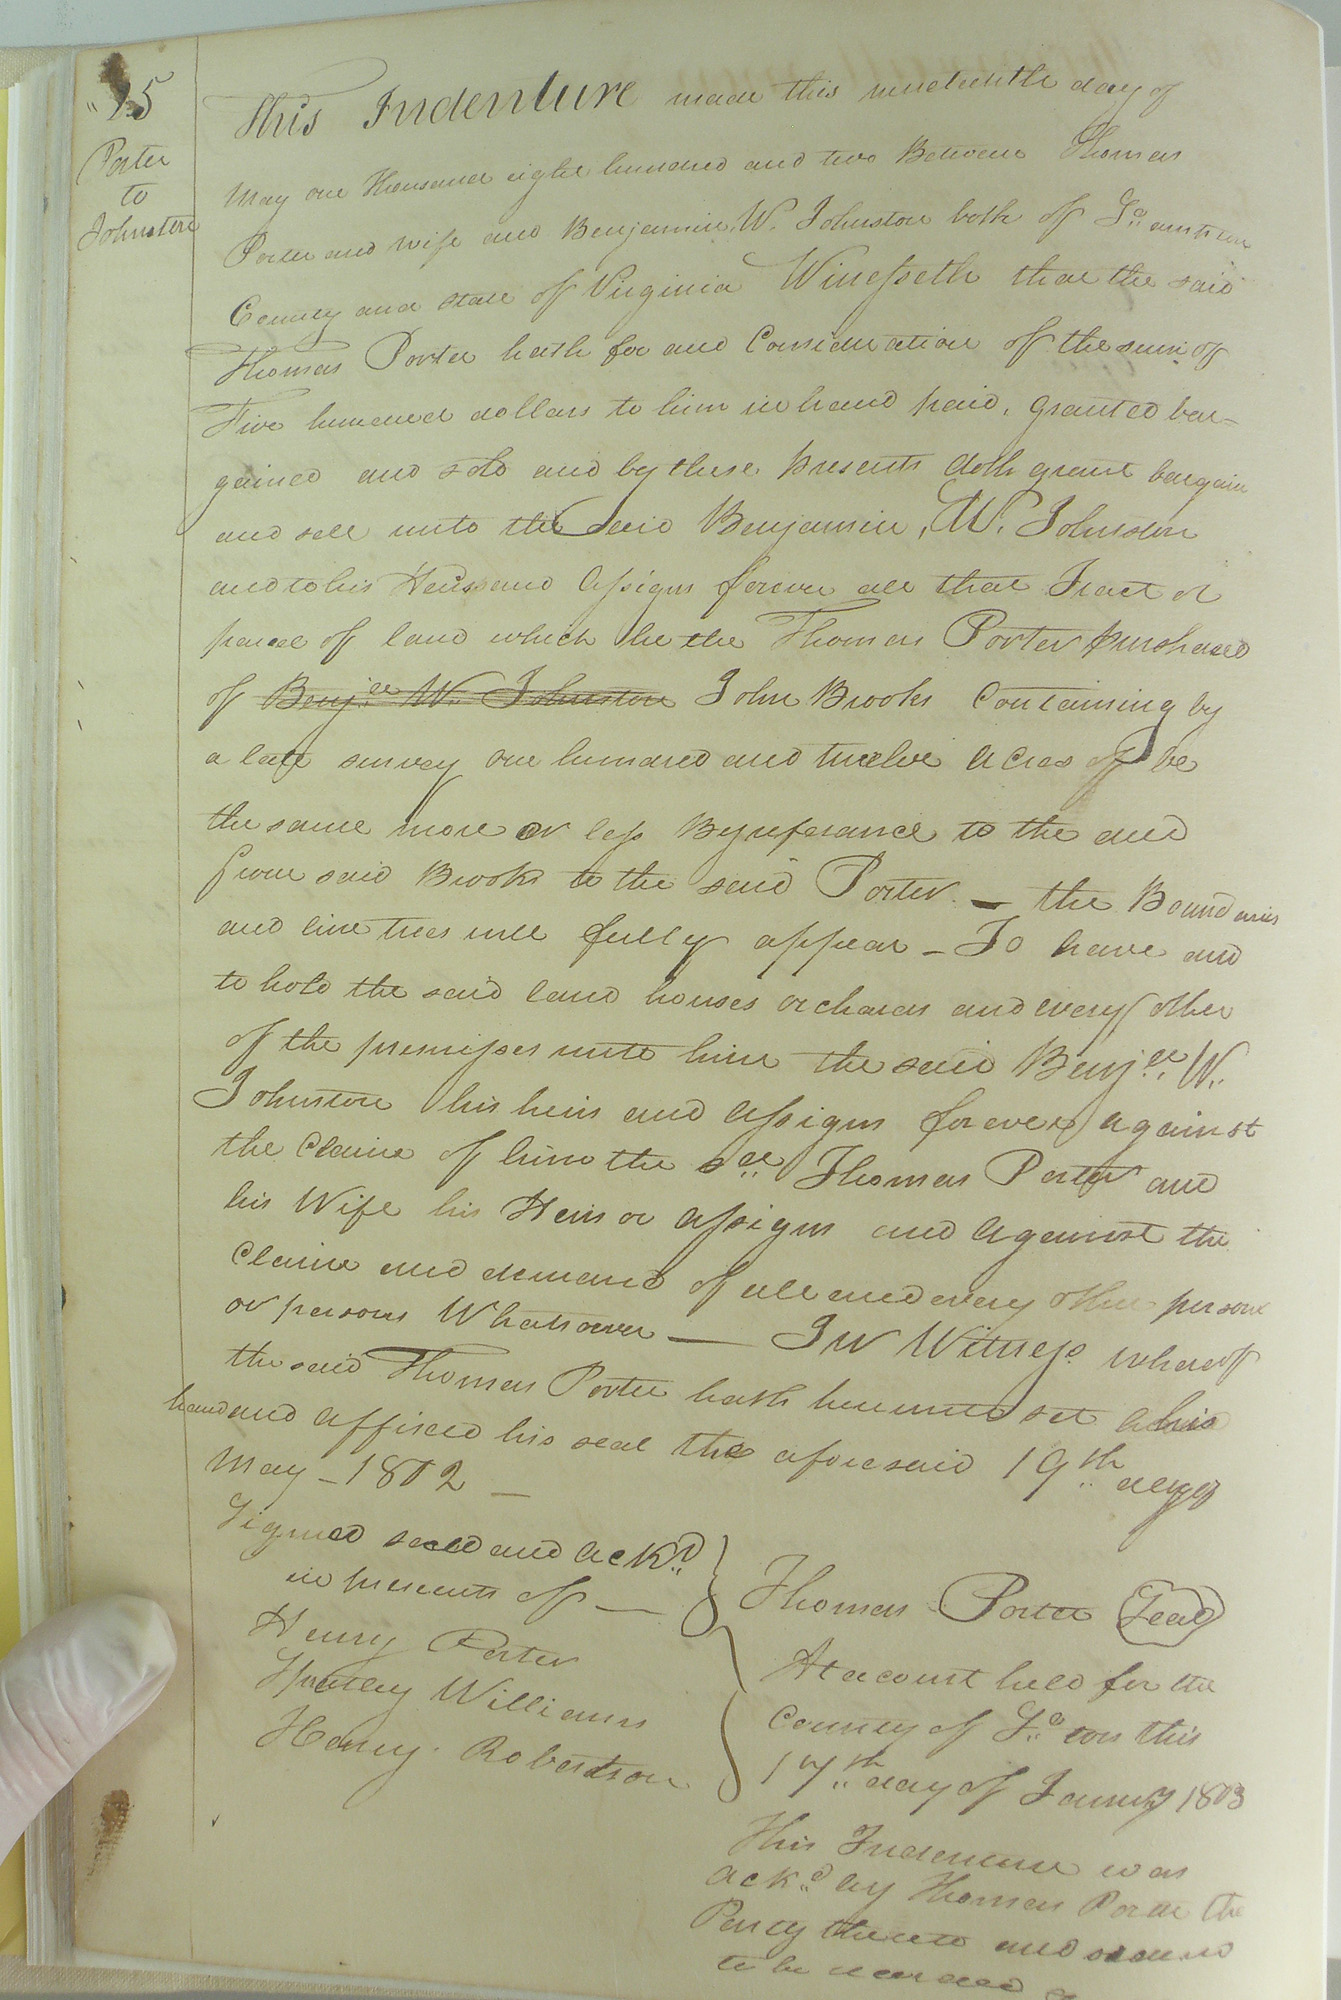 15
Porter
to
Johnston
This Indenture made this nineteenth day of
May one Thousand eight hundred and two Between Thomas
Porter and wife and Benjamin W. Johnston both of Lo
County and State of Virginia Winesseth that the said
Thomas Porter hath for and Consideration of the sum of
Five hundred dollars to him in hand paid, granted bar-
gained and sold and by these presents doth grant bargain
and sell unto the said Benjamin, W. Johnston
and to his Heirs and Assigns forever all that Tract or
parcel of land which he the Thomas Porter purchased
of Benja W. Johnston John Brooks Containing by
a late survey one hundred and twelve acres of be
the same more or less By referance to the deed
from said Brooks to the said Porter – the Boundaries
and line trees will fully appear – To have and
to hold the said land houses orchards and every other
of the premisses unto him the said Benja. W.
Johnston his heirs and assigns forever against
the Claim of him the sd Thomas Porter and
his Wife his Heirs or assigns and against the
Claim and demand of all and every other person
or persons Whatsoever — In Witness whereof
the said Thomas Porter hath hereunto set his
hand and affixed his seal the aforesaid 19th day of
May – 1802 –
Signed seald and ackd
in presents of —
Henry Porter
Williams
Henry Robertson
Thomas Porter Seal
At a court held for the
County of Lo on this
17th day of January 1803
This Indenture was
ackd by Thomas Porter the
Party thereto and ordered
to be recorded